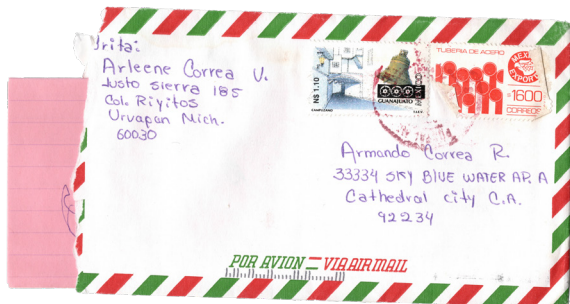 Urita:
Arleene Correa V.
Justo Sierra 185
Col. Riyitos
Urvapan Mich.
60030
N$ 1.10
GUANAJUATO
MEXICO
TUBERIA DE ACERO
MEXICO
EXPORTA
$1600
CORREOS
Armando Correa R.
33334 SKY BLUE WATER AP. A
Cathedral city C.A.
92234
POR AVION VIA AIR MAIL